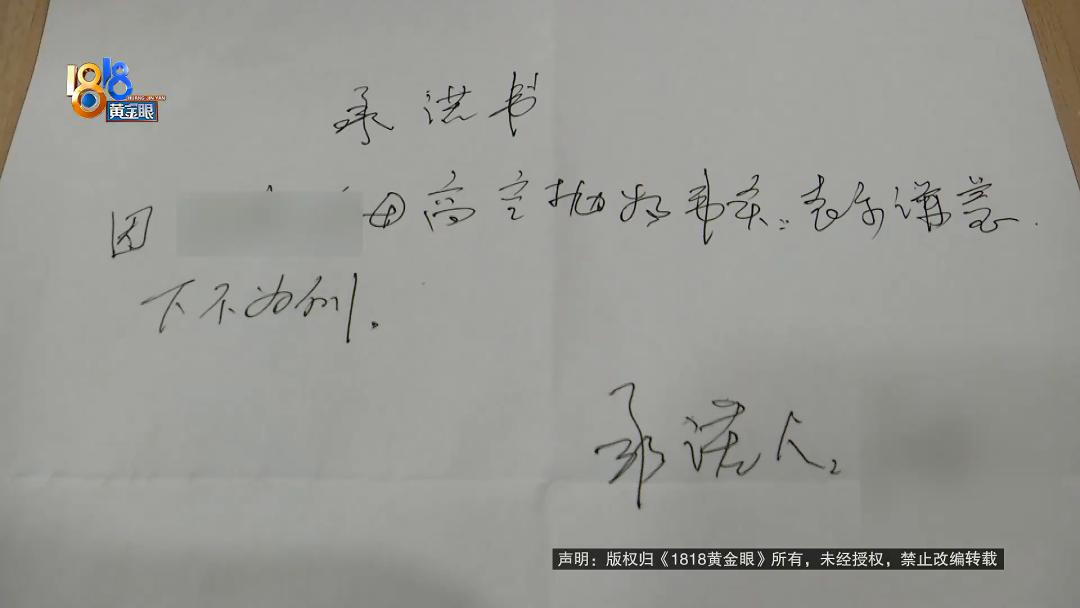 1818
HUANG JIN YAN
黄金眼
承诺书
因 高空抛物 表示谦意.
下不为例.
承诺人:
声明：版权归《1818黄金眼》所有，未经授权，禁止改编转载